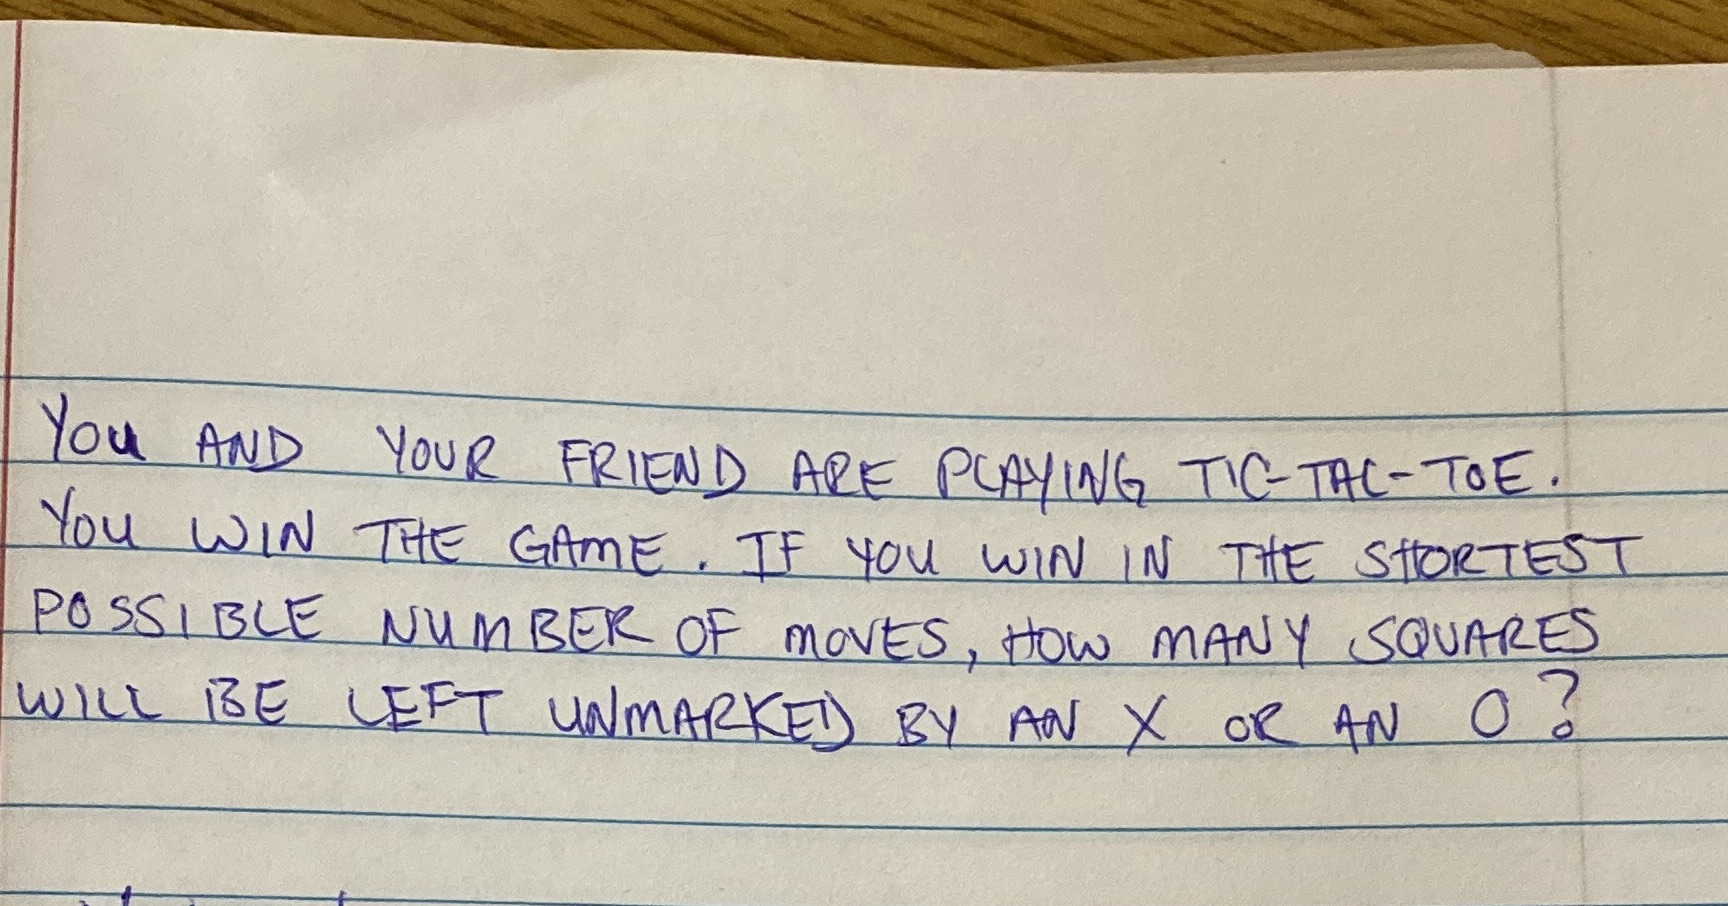 YOU AND YOUR FRIEND ARE PLAYING TIC-TAC-TOE.
YOU WIN THE GAME. IF YOU WIN IN THE SHORTEST
POSSIBLE NUMBER OF MOVES, HOW MANY SQUARES
WILL BE LEFT UNMARKED BY AN X OR AN O?